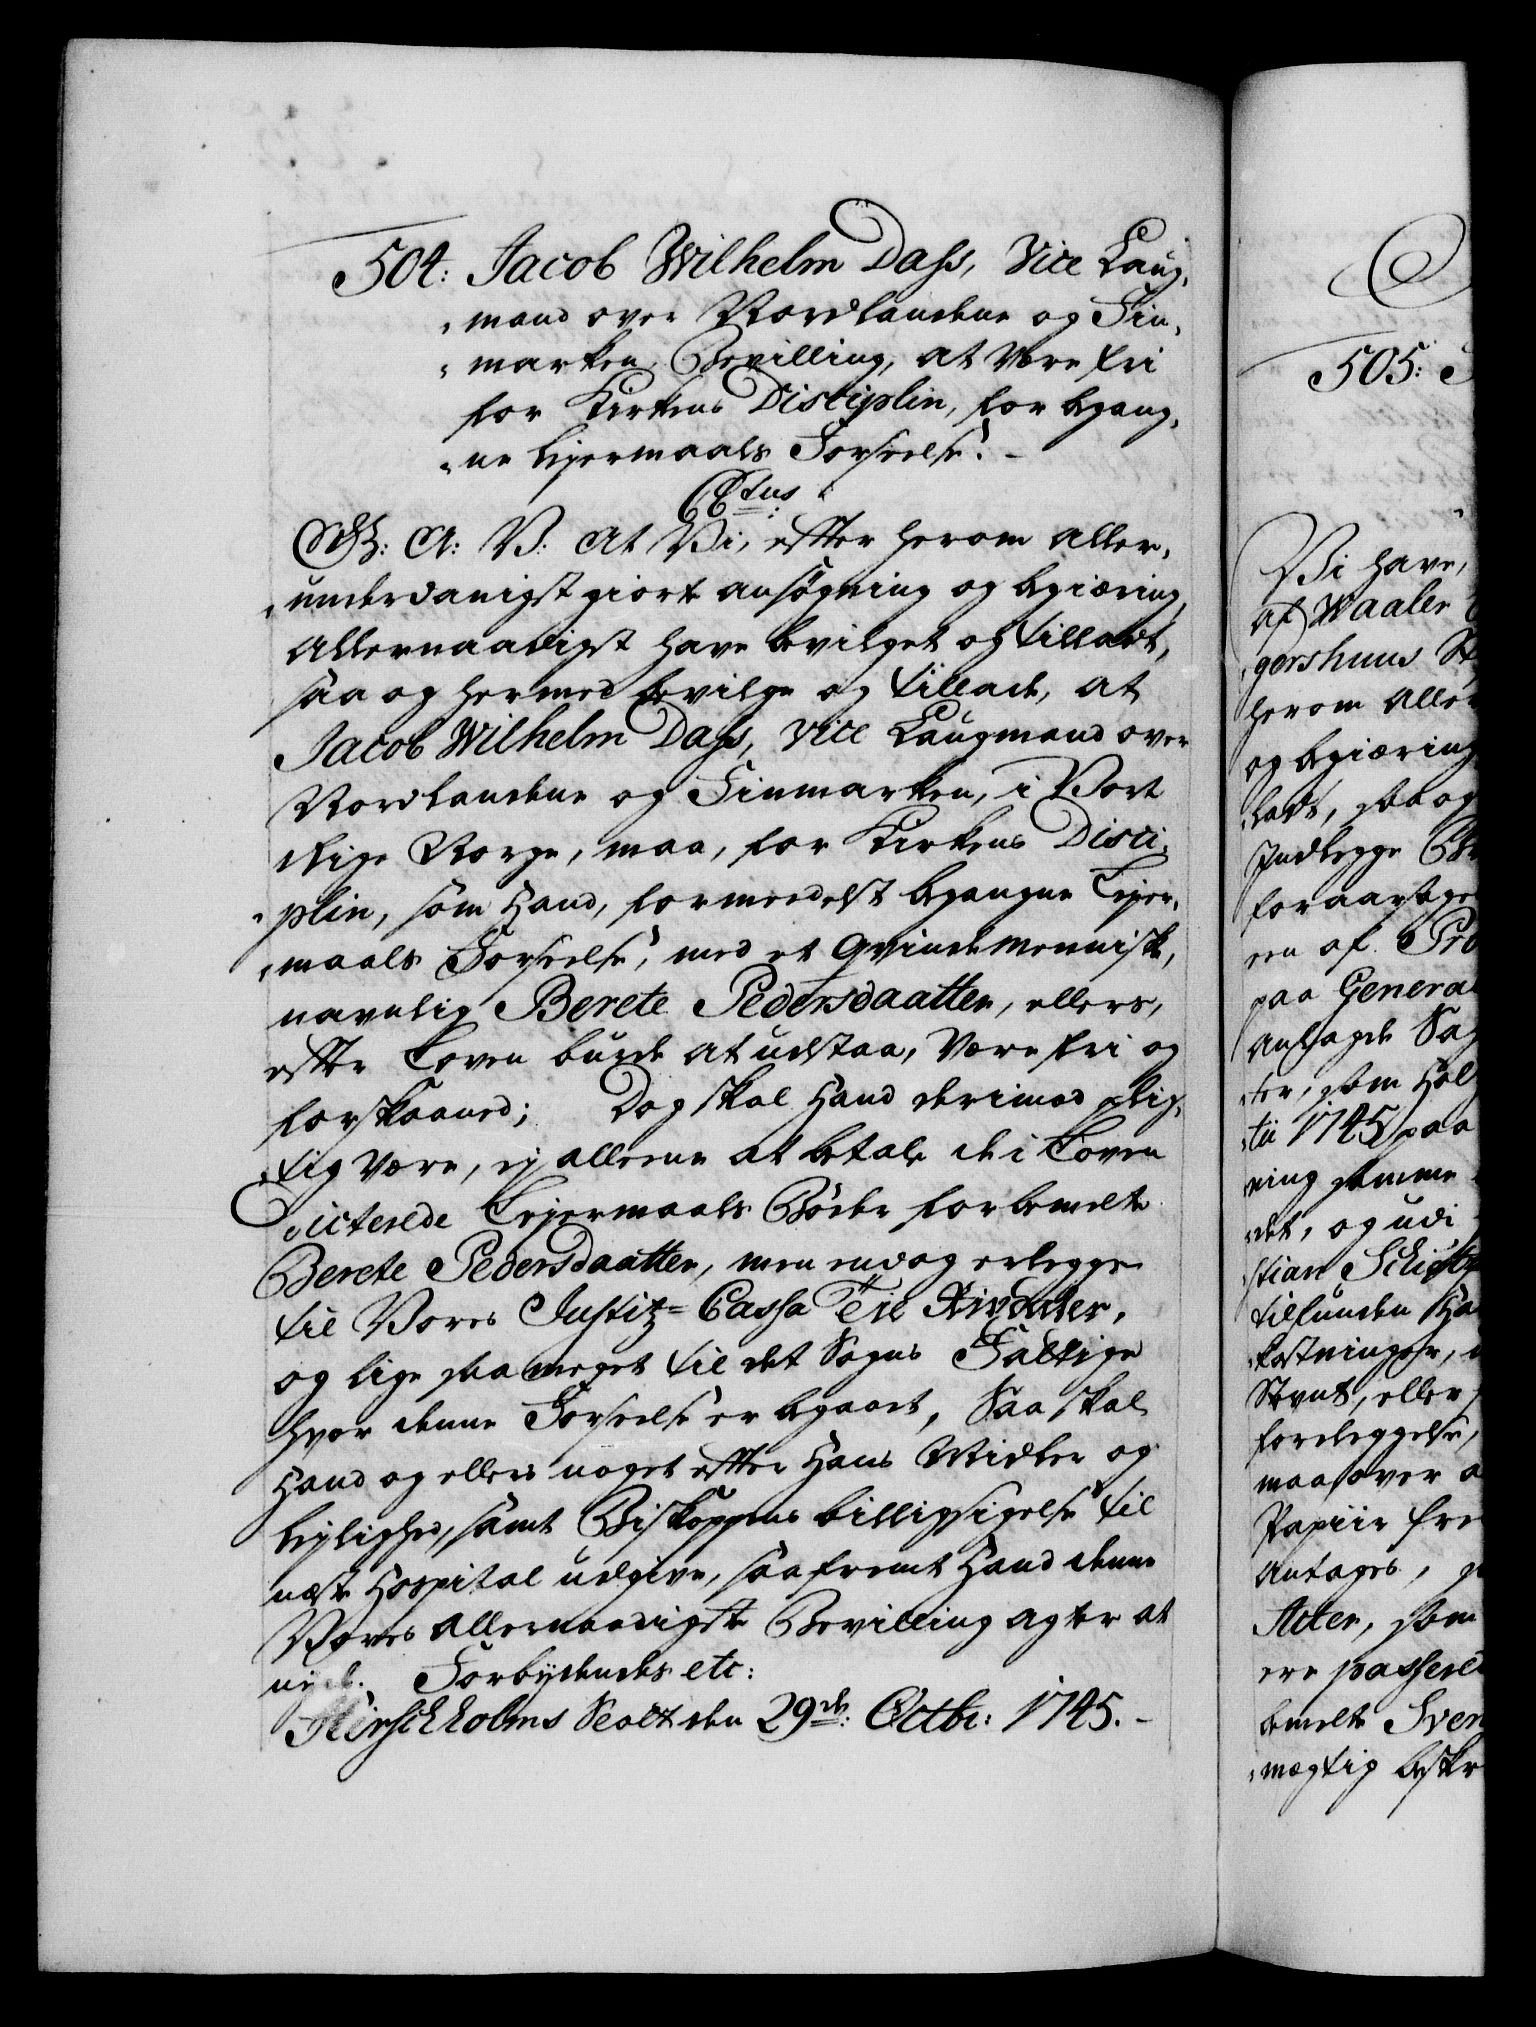 504: Jacob Wilhelm Dass, Vice Laug,
„mand over Nordlandene og Fin,
„marken, Bevilling, at være fri
for Kirkens Disciplin, for begang,
„ne Lejermaals Forseelse. –
C6tus:
G: A: V: At Vi, efter herom aller,
„underdanigst giort ansøgning og begiæring,
allernaadigst have bevilget og tilladt,
saa og hermed bevilge og tillade, at
Jacob Wilhelm Dass, Vice Laugmand over
Nordlandene og Finmarken, i Vort
Rige Norge, maa, for Kirkens Disci,
„plin, som Hand, formedelst begangne Lejer,
„maals Forseelse, med et Qvindemenniske,
navnlig Berete Pedersdaatter, ellers,
efter Loven burde at udstaa, være fri og
forskaaned; Dog skal Hand derimod plig,
„tig være, ej alleene at betale de i Loven
dicterede Lejermaals Bøder for bemelte
Berete Pedersdaatter, men endog erlegge
til Vores Justitz-Cassa Tie Rixdaler,
og lige saa meget til det Sogns Fattige
hvor denne Forseelse er begaaet, Saa skal
Hand og ellers noget efter Hans Midler og
Lejlighed, samt Biskoppens billigsigelse til
næste Hospital udgive, saafremt Hand denne
Vores allernaadigste Bevilling agter at
nyde. Forbydendes etc:
Hirschholms Slott den 29de: Octbr: 1745. –
505:
Vi have,
af Waaler
gershuus St
herom aller
og begiæring
„ladt, saa og
Indlegge
foraarsage
een af Pro
paa Genera
andragde Sag
„ter, som Hol
„tii 1745 paa
ning samme
„det, og udi
„stian Schi
tilfunden Ha
„kostninger,
Stvnt, eller
foreleggelse,
maa over a
Papiir fre
antages,
Acter, som
ere passered
bemelte Sven
„mægtig beskr